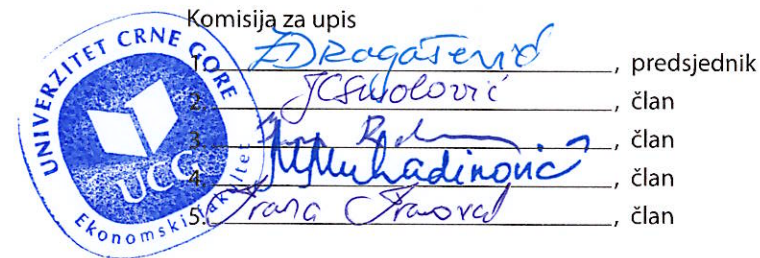 Komisija za upis
1. ZDragašević, predsjednik
2. , član
3. , član
4. MMuhadinović, član
5. Ivana, član
UNIVERZITET CRNE GORE
UCG
Ekonomski fakultet